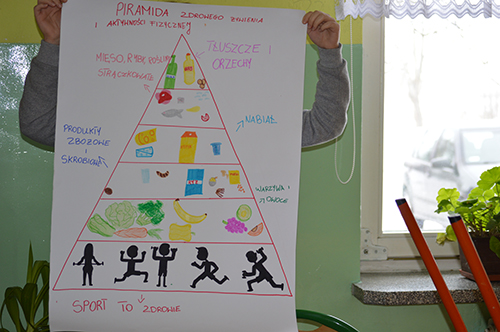 PIRAMIDA ZDROWEGO ŻYWIENIA
I AKTYWNOŚCI FIZYCZNEJ
TŁUSZCZE I
ORZECHY
MIĘSO, RYBY, ROŚLINY
STRĄCZKOWATE
NABIAŁ
PRODUKTY
ZBOŻOWE
I
SKROBIOWE
WARZYWA I
OWOCE
SPORT TO ZDROWIE